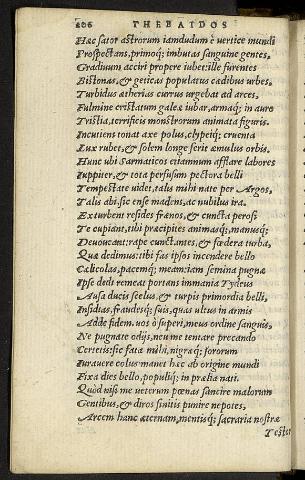 206 THEBAIDOS
Hæc sator astrorum iamdudum è vertice mundi
Prospectans, primoq; imbutas sanguine gentes,
Gradiuum acciri propere iubet: ille furentes
Bistonas, & geticas populatus cadibus urbes,
Turbidus ætherias currus urgebat ad arces,
Fulmine cristatum galeæ iubar, armaq; in auro
Tristia, terrificis monstrorum animata figuris.
Incutiens tonat axe polus, clypeiq; cruenta
Lux rubet, & solem longe ferit æmulus orbis.
Hunc ubi Sarmaticos etiamnum afflare labores
Iuppiter, & tota perfusum pectora belli
Tempestate uidet, talis mihi nate per Argos,
Talis abi, sic ense madens, ac nubilus ira.
Exturbent resides frænos, & cuncta perosi
Te cupiant, tibi præcipites animasq;, manusq;
Deuoueant: rape cunctantes, & fœdera turba,
Quæ dedimus: tibi fas ipsos incendere bello
Cælicolas, pacemq; meam: iam semina pugnæ
Ipse dedi: remeat portans immania Tydeus
Ausa ducis scelus, & turpis primordia belli,
Insidias, fraudesq; suis, quas ultus in armis
Adde fidem. uos ô superi, meus ordine sanguis,
Ne pugnate odijs, neu me tentare precando
Certetis: sic fata mihi, nigræq; sororum
Iurauere colus: manet hæc ab origine mundi
Fixa dies bello, populiq; in prælia nati.
Quòd nisi me ueterum pœnas sancire malorum
Gentibus, & diros sinitis punire nepotes,
Arcem hanc æternam, mentisq; sacraria nostræ
Testor